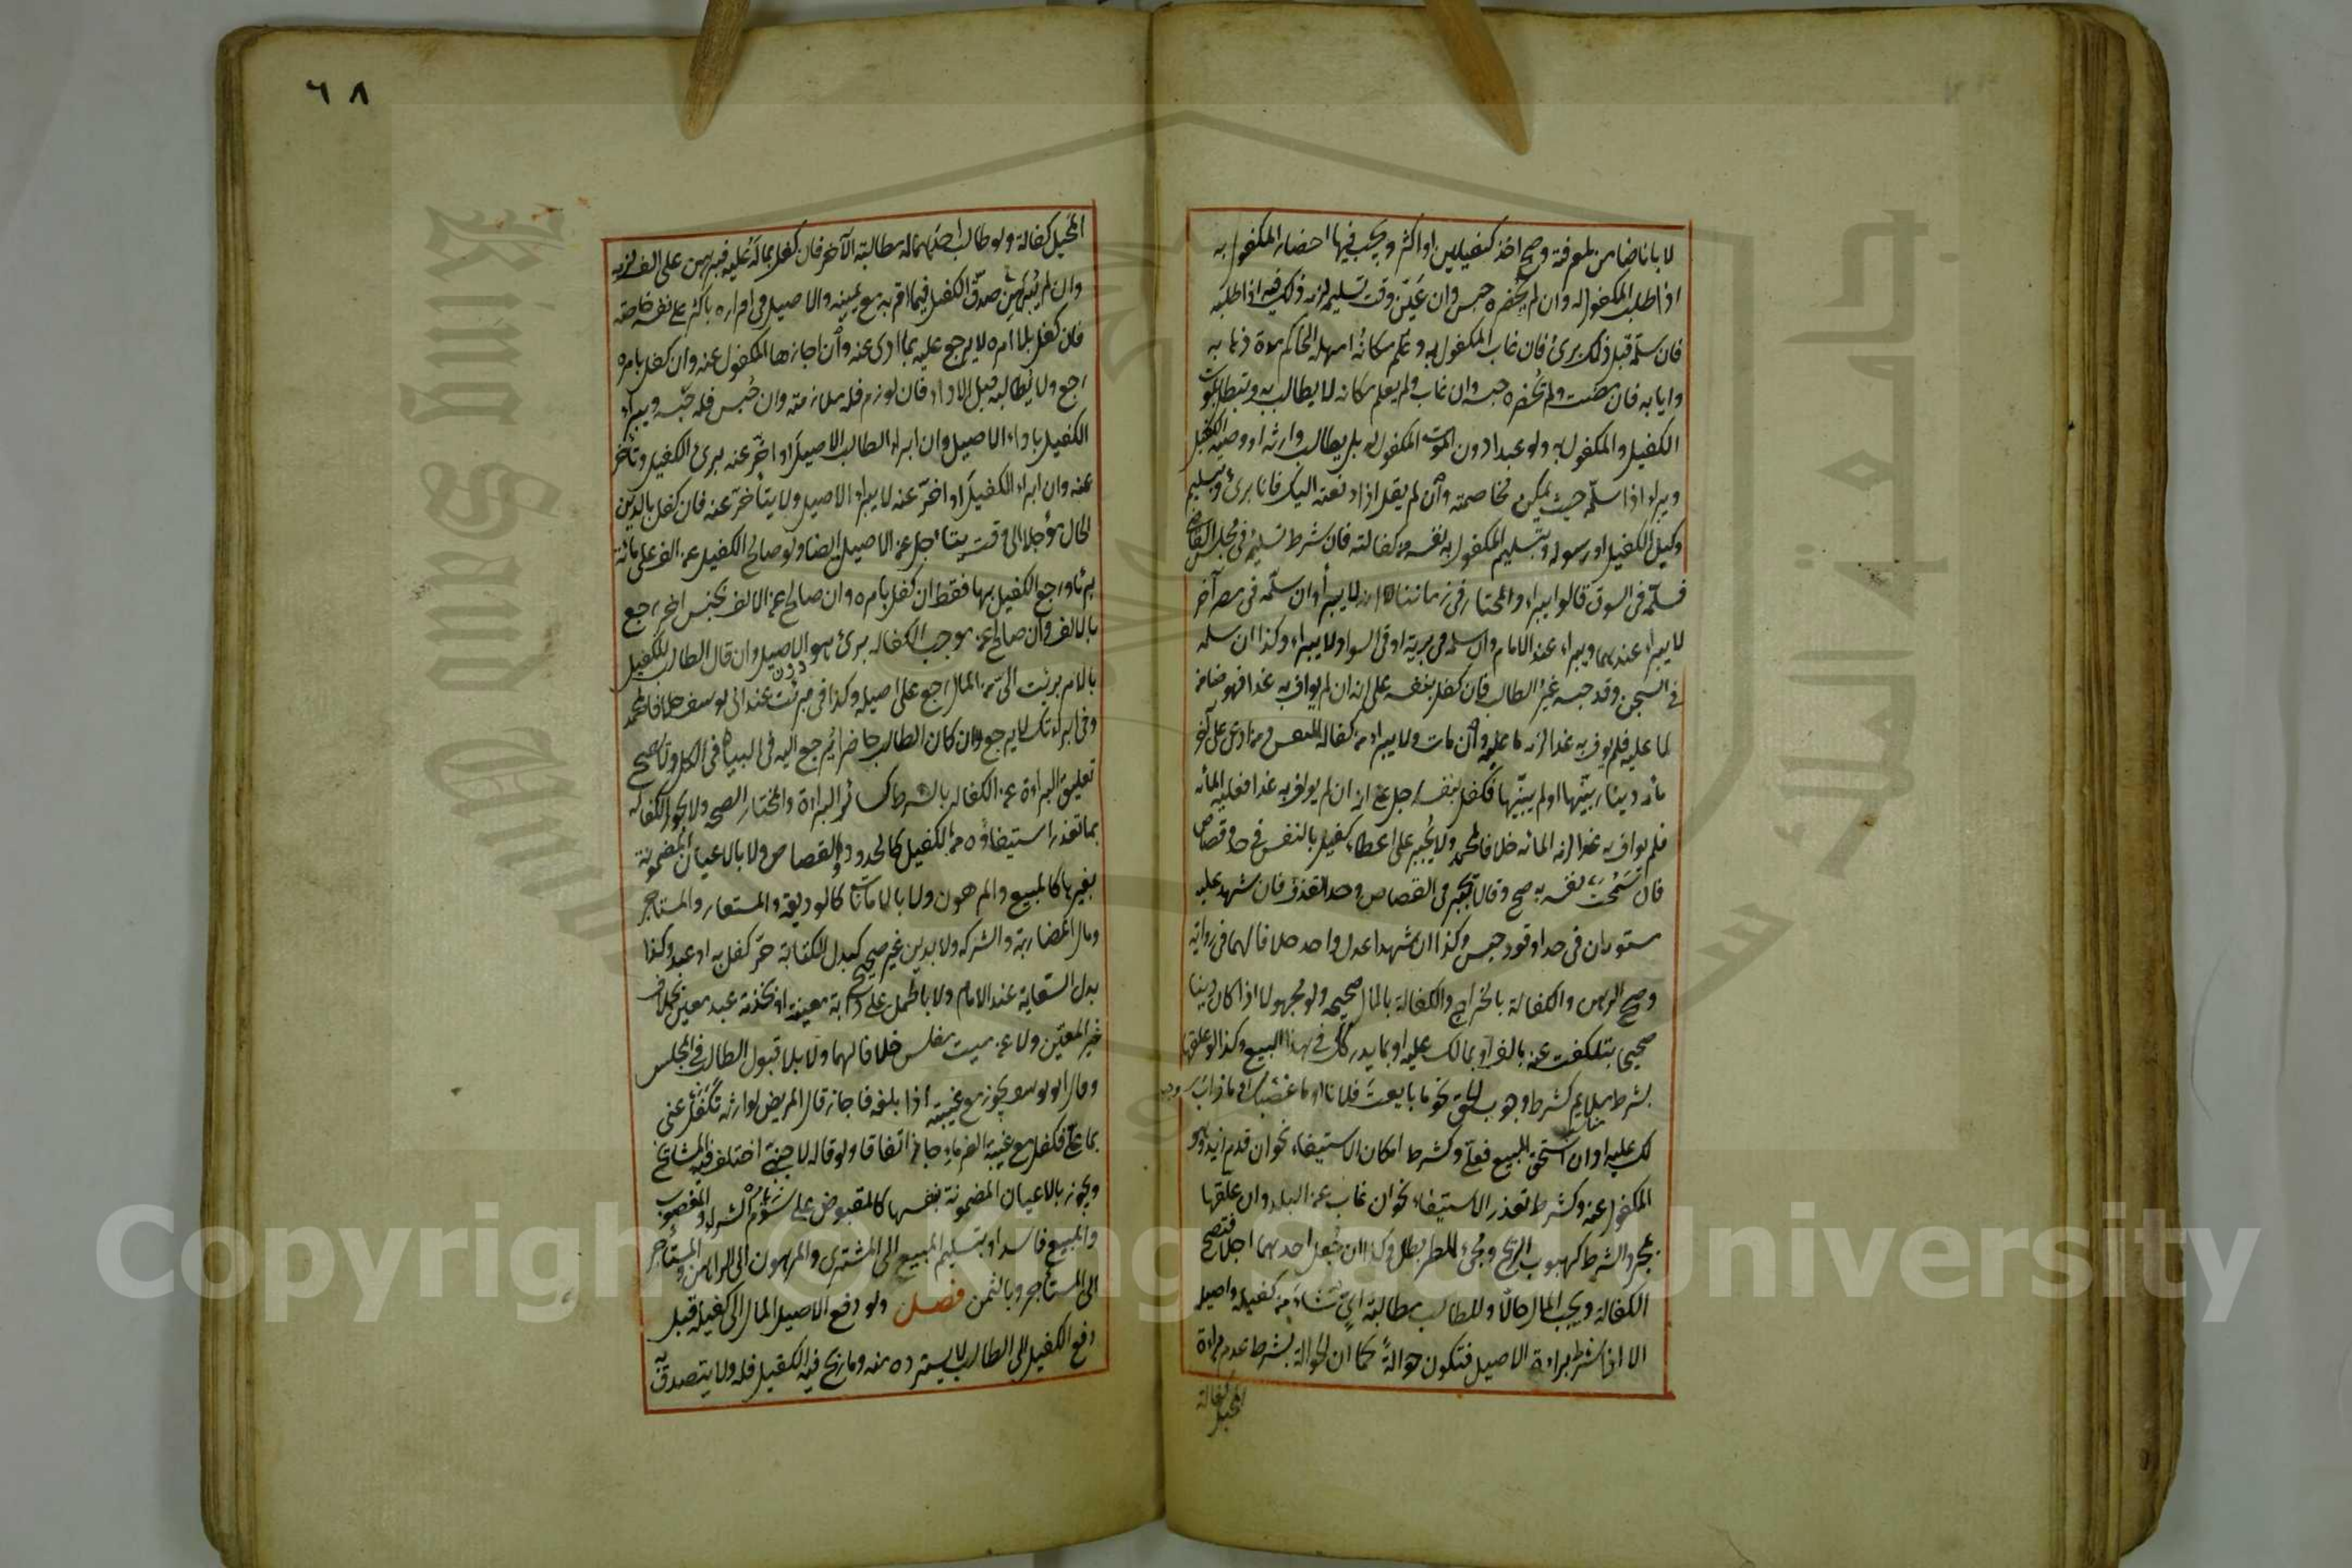 لا بانا ضامن لمعرفة وصح اخذ كفيلين او اكثر ويجب فيها احضار المكفول به
اذا طلب المكفول له وان لم يحضره حبس وان عين وقت تسليمه لزمه ذلك فيه اذا طلبه
فان سلمه قبل ذلك برئ فان غاب المكفول به وعلم مكانه امهله الحاكم مدة ذهابه
وايابه فان مضت ولم يحضره حبسه وان غاب ولم يعلم مكانه لا يطالب به وتبطل بموت
الكفيل والمكفول به ولو عبدا دون الموت المكفول له بل يطالب وارثه او وصيه الكفيل
ويبراء اذا سلمه حيث يمكن مخاصمته وان لم يقل اذا دفعته اليك فانا برئ وبتسليم
وكيل الكفيل او رسوله وبتسليم المكفول به نفسه من كفالته فان شرط تسليمه في مجلس القاضي
فسلمه في السوق قالوا يبراء والمختار في زماننا انه لا يبرأ وان سلمه في مصر آخر
لا يبراء عندهما ويبراء عند الامام وان سلمه في برية او في السواد لا يبراء وكذا ان سلمه
في السجن وقد حبسه غير الطالب فان كفل بنفسه على انه ان لم يواف به غدا فهو ضامن
لما عليه فلم يوف به غدا لزمه ما عليه وان مات ولا يبراء من كفالة النفس ومن ادعى على آخر
مائة دينار بينها او لم يبينها فكفل بنفسه رجل على انه ان لم يواف به غدا فعليه المائة
فلم يواف به غدا لزمه المائة خلافا لمحمد ولا يجبر على اعطاء كفيل بالنفس في حد وقصاص
فان سمحت نفسه به صح وقالا يجبر في القصاص وحد القذف فان شهد عليه
مستوران في حد او قود حبس وكذا ان شهدا عدل واحد خلافا لهما في رواية
وصح الرهن والكفالة بالخراج والكفالة بالمال صحيحه ولو مجهولا اذا كان دينا
صحيحا بتكفلت عنه بالف او بما لك عليه او بما يدركك في هذا البيع وكذا لو علقها
بشرط ملايم كشرط وجوب الحق نحو ما بايعت فلانا او ما غصبك او ما ذاب
لك عليه او ان استحق المبيع فعلي وكشرط امكان الاستيفاء نحو ان قدم زيد وهو
المكفول عنه وكشرط تعذر الاستيفاء نحو ان غاب عن البلد وان علقها
بمجرد الشرط كهبوب الريح ومجئ المطر بطل وكذا ان جعل احدهما اجلا فتصح
الكفالة ويجب المال حالا وللطالب مطالبة اي شاء من كفيله واصيله
الا اذا شرط براءة الاصيل فتكون حوالة كما ان الحوالة بشرط عدم براءة
المحيل كفالة
٦٨
المحيل كفالة ولو طالب احدهما له مطالبة الآخر فان كفل بماله عليه فبرهن على الف لزمه
وان لم يبرهن صدق الكفيل فيما اقر به مع يمينه والاصيل في اقراره باكثر على نفسه خاصة
فان كفل بلا امره لا يرجع عليه بما ادى عنه وان اجازها المكفول عنه وان كفل بامره
رجع ولا يطالبه قبل الاداء فان لوزم فله ملازمته وان حبس فله حبسه ويبراء
الكفيل باداء الاصيل وان ابراء الطالب الاصيل او اخر عنه برئ الكفيل وتأخر
عنه وان ابراء الكفيل او اخر عنه لا يبراء الاصيل ولا يتأخر عنه فان كفل بالدين
الحال مؤجلا الى وقت يتاجل عن الاصيل ايضا ولو صالح الكفيل عن الف على مائة
برئا ورجع الكفيل بها فقط ان كفل بامره وان صالح عن الالف بجنس اخر رجع
بالالف وان صالح عن موجب الكفالة برئ هو دون الاصيل وان قال الطالب للكفيل
بالامر برئت الي من المال رجع على اصيله وكذا في برئت عند ابي يوسف خلافا لمحمد
وفي ابراءتك لا يرجع وان كان الطالب حاضرا يرجع اليه في البيان في الكل ولا يصح
تعليق البراءة عن الكفالة بالشرط كسائر البراءة والمختار الصحه ولا يجوز الكفالة
بما تعذر استيفاؤه من الكفيل كالحدود والقصاص ولا بالاعيان المضمونة
بغيرها كالمبيع والمرهون ولا بالامانات كالوديعة والمستعار والمستاجر
ومال المضاربة والشركه ولا بدين غير صحيح كبدل الكتابة حر كفل به او عبد وكذا
بدل السعاية عند الامام ولا بالحمل على دابة معينة او بخدمة عبد معين بخلاف
غير المعين ولا عن ميت مفلس خلافا لهما ولا بلا قبول الطالب في المجلس
وقال ابو يوسف يجوز مع غيبته اذا بلغه فاجاز قال المريض لوارثه تكفل عني
بما علي فكفل مع غيبة الغرماء جاز اتفاقا ولو قاله لاجنبي اختلف فيه المشايخ
ويجوز بالاعيان المضمونة بنفسها كالمقبوض على سوم الشراء والمغصوب
والمبيع فاسدا وبتسليم المبيع الى المشتري والمرهون الى الراهن والمستأجر
الى المستأجر وبالثمن فصل ولو دفع الاصيل المال الى كفيله قبل
دفع الكفيل الى الطالب لا يسترده منه وما ربح فيه الكفيل فله ولا يتصدق به
Copyright © King Saud University